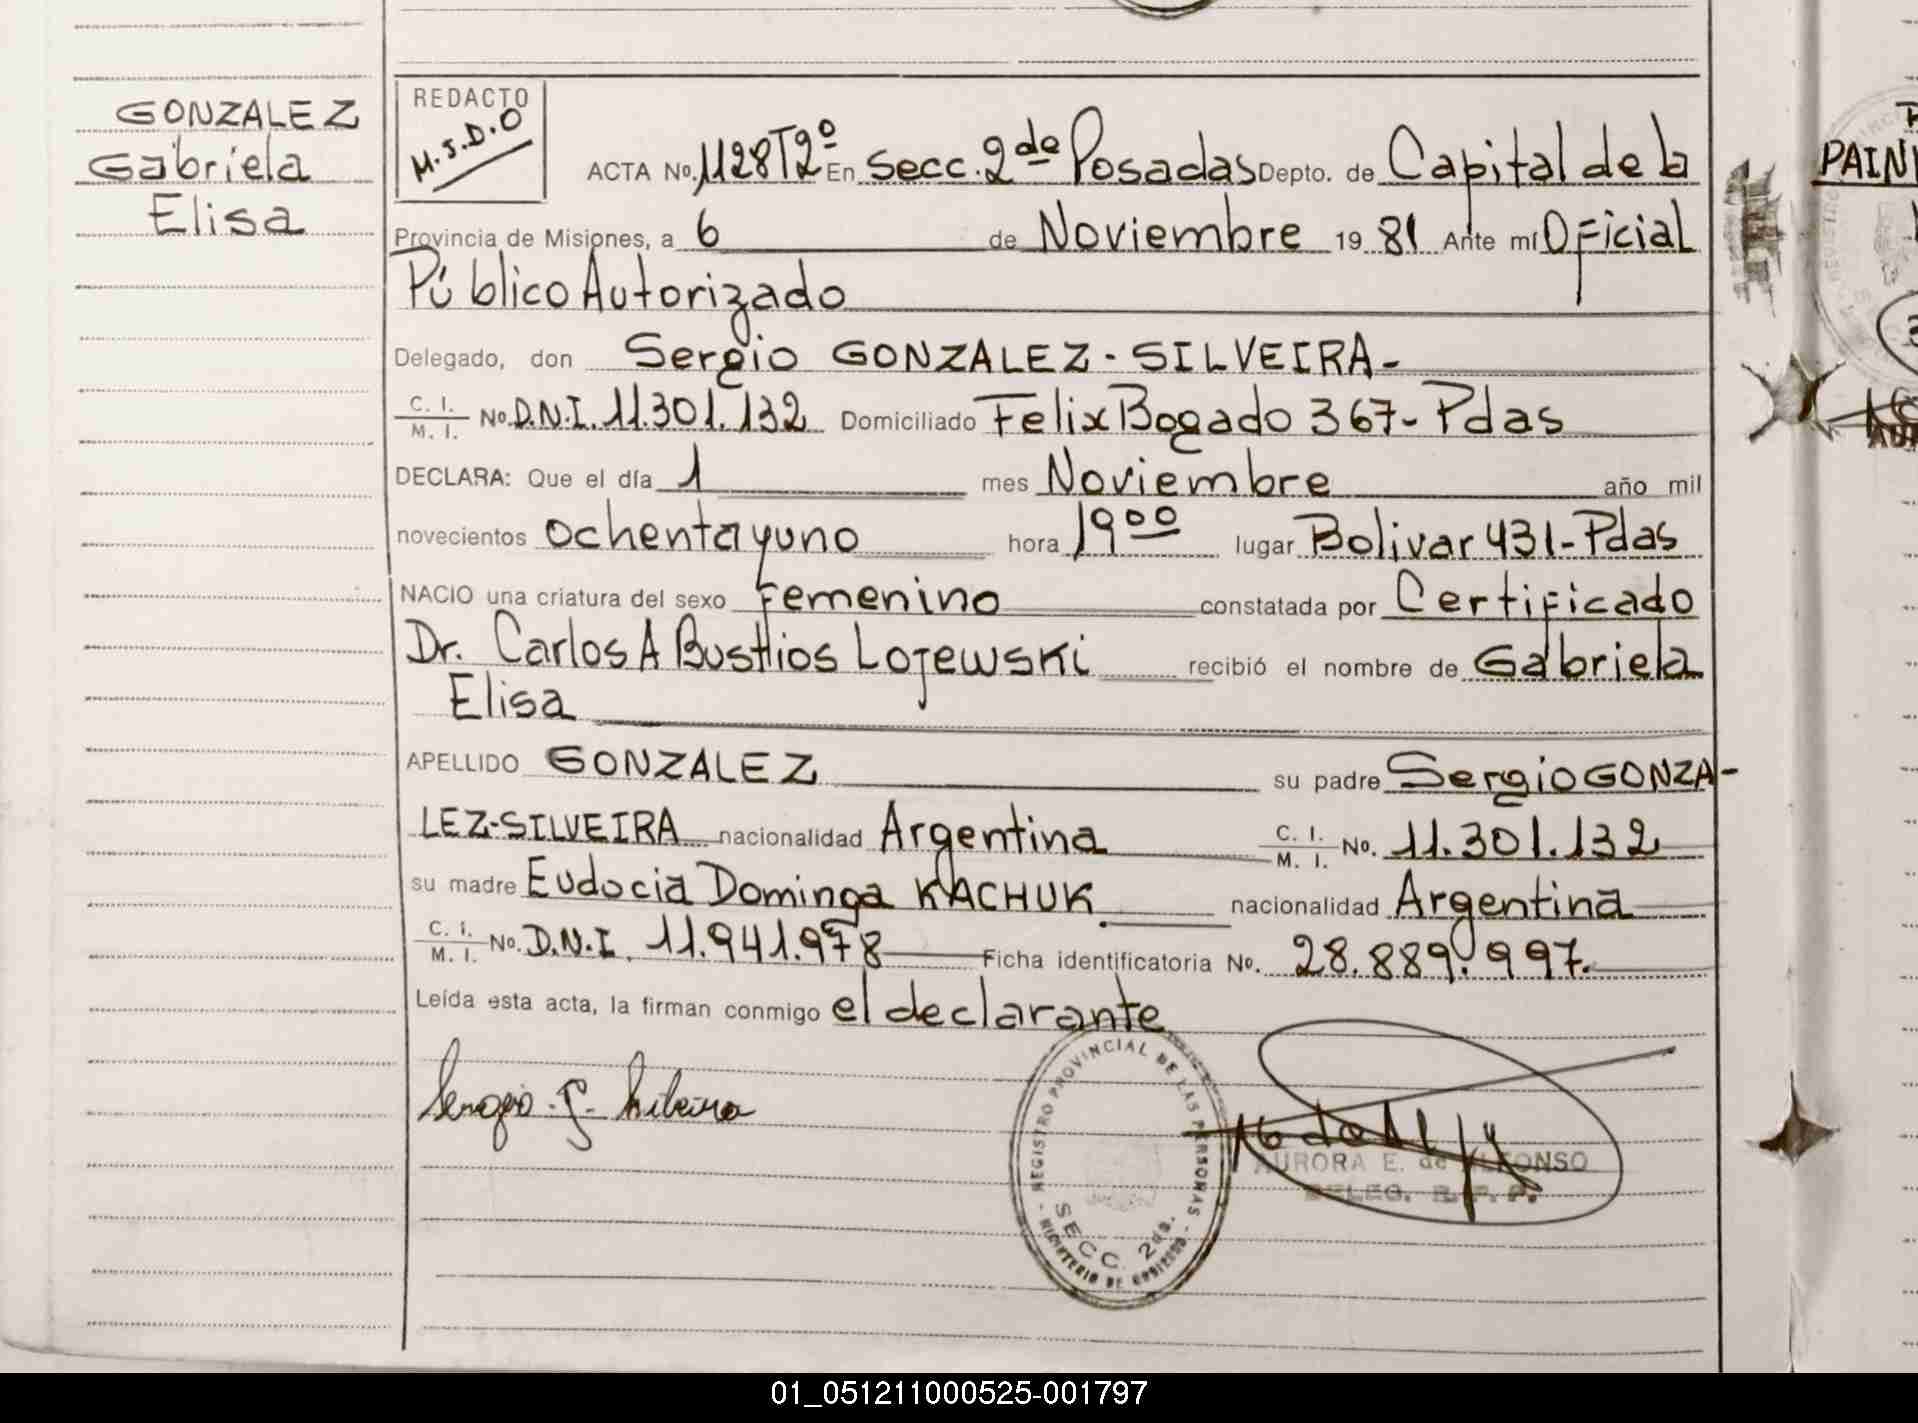 GONZALEZ
Gabriela
Elisa
REDACTO
M.S.D.O
ACTA No. 1128 T2º En Secc. 2da Posadas Depto. de Capital de la
Provincia de Misiones, a 6 de Noviembre 19 81 Ante mí Oficial
Público Autorizado
Delegado, don Sergio GONZALEZ-SILVEIRA-
C. I. M. I. No. D.N.I. 11.301.132 Domiciliado Felix Bogado 367-Pdas
DECLARA: Que el día 1 mes Noviembre año mil
novecientos ochenta y uno hora 19 00 lugar Bolivar 431-Pdas
NACIO una criatura del sexo femenino constatada por Certificado
Dr. Carlos A Busttios Lojewski recibió el nombre de Gabriela
Elisa
APELLIDO GONZALEZ su padre Sergio GONZA-
LEZ-SILVEIRA nacionalidad Argentina C. I. M. I. No. 11.301.132
su madre Eudocia Dominga KACHUK nacionalidad Argentina
C. I. M. I. No. D.N.I. 11.941.978 Ficha identificatoria No. 28.889.997.
Leída esta acta, la firman conmigo el declarante
Sergio. G. Silveira
REGISTRO PROVINCIAL DE LAS PERSONAS
SECC. 2da.
MINISTERIO DE GOBIERNO
AURORA E. de ALFONSO
DELEG. R. P. P.
PAIN
01_051211000525-001797